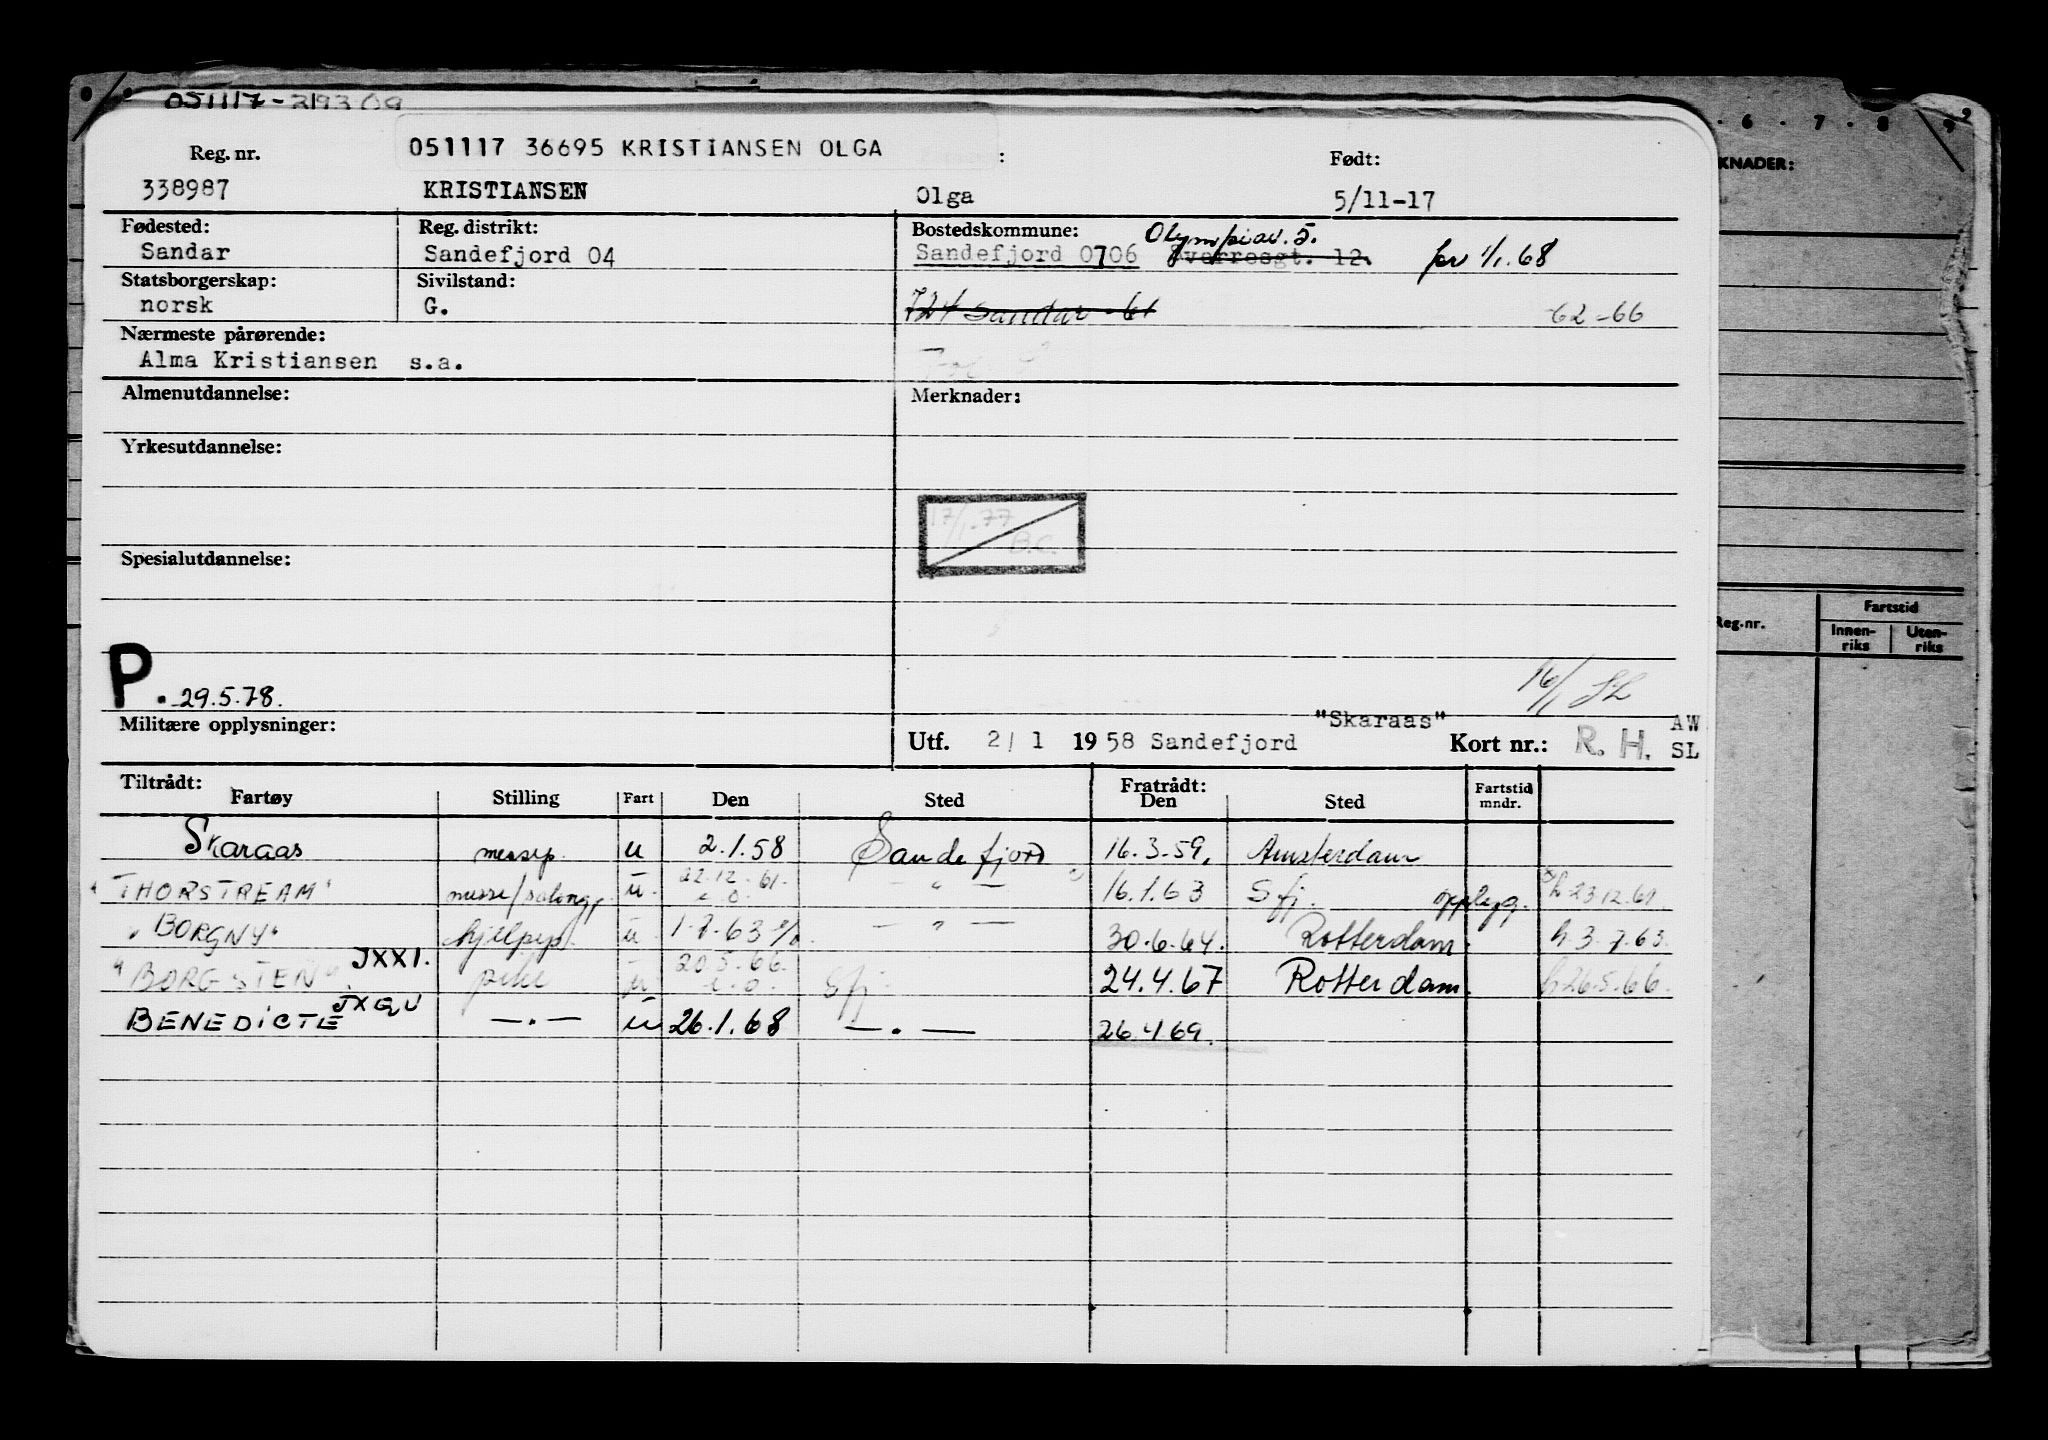 051117-
051117 36695 KRISTIANSEN OLGA
Reg. nr. : Født:
338987 KRISTIANSEN Olga 5/11-17
Fødested: Reg. distrikt: Bostedskommune: Olympiav. 5.
Sandar Sandefjord 04 Sandefjord 0706 Sverresgt. 12. pr 1/1.68
Statsborgerskap: Sivilstand:
norsk G. 724 Sandar -61 62-66
Nærmeste pårørende:
Alma Kristiansen s.a.
Almenutdannelse: Merknader:
Yrkesutdannelse:
17/1.77
B.C.
Spesialutdannelse:
P. 29.5.78. 16/1 SL
Militære opplysninger: "Skaraas" AW
Utf. 2/1 1958 Sandefjord Kort nr.: R. H. SL
Tiltrådt: Fratrådt:
Fartøy Stilling Fart Den Sted Den Sted Fartstid mndr.
Skaraas messep. u 2.1.58 Sandefjord 16.3.59. Amsterdam
"THORSTREAM" messe/salongp. u. 22.12.61. — " — 16.1.63 Sfj. opplyg. h 23.12.61.
"BORGNY" hjelpep. u. 1.7.63 — " — 30.6.64. Rotterdam. h. 3.7.63.
"BORGSTEN" JXXI. pike u 20.5.66. Sfj. 24.4.67 Rotterdam. h 26.5.66.
BENEDICTE JXQU —.— u 26.1.68 —.— 26.4.69.
6 . 7 . 8 . 9
KNADER:
Reg.nr. Fartstid
Innenriks Utenriks